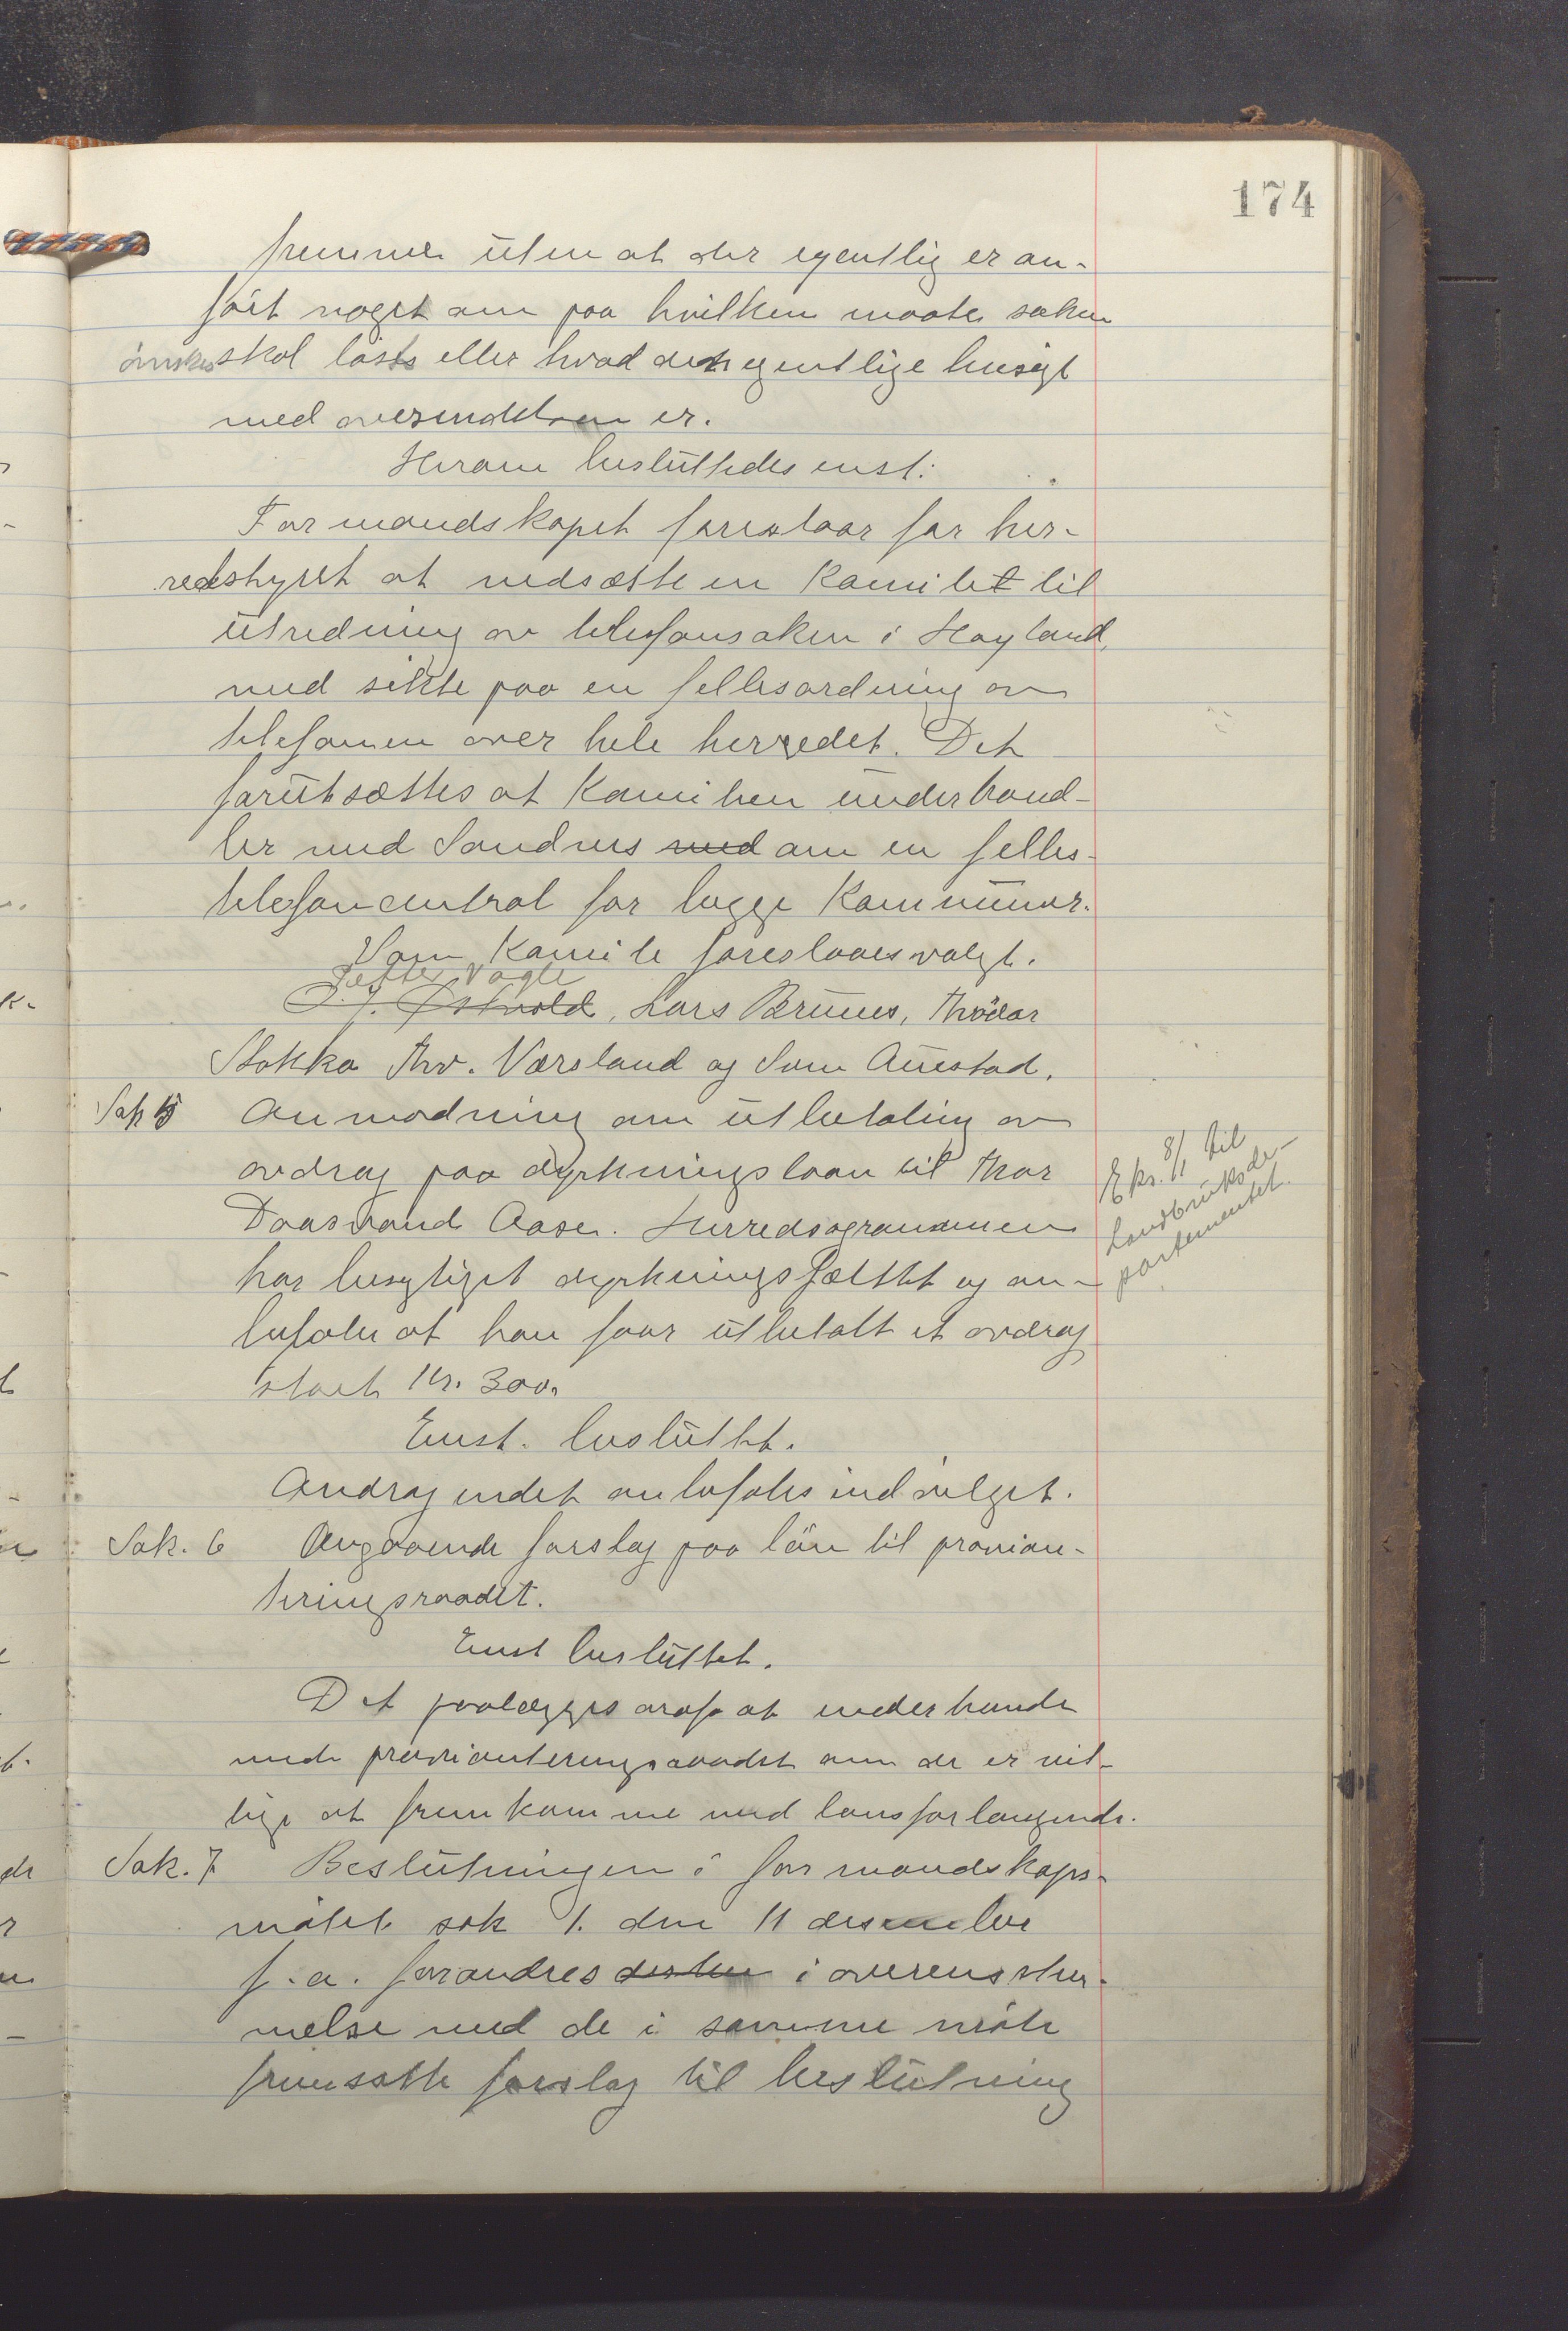 174
fremmer uten at der egentlig er an-
ført noget om paa hvilken maate saken
ønskes skal løses eller hvad den egentlige hensigt
med oversendelsen er.
Herom besluttedes enst:
Formandskapet foreslaar for her-
redstyret at nedsætte en Komite til
utredning av telefonsaken i Høyland,
med sikte paa en fellesordning av
telefonen over hele herredet. Det
forutsættes at Komiteen underhand-
ler med Sandnes med om en felles
telefoncentral for begge Kommuner.
Som Komite foreslaaes valgt.
Petter Vagle
Østvold, Lars Brunes, Thodar
Stokka Thv. Varsland og Sven Auestad.
Sak 5 Anmodning om utbetaling av
avdrag paa dyrkningslaan til Thor
Daasvand Aase. Herredsagronomen
har besigtiget dyrkningsfæltet og an-
befaler at han faar utbetalt et avdrag
stort Kr. 300.
8/11 til
Ekspr.
Landbruksde-
partementet.
Enst. besluttet.
Andragendet anbefales indvilget.
Sak. 6 Angaaende forslag paa lån til provian-
teringsraadet.
Enst besluttet.
Det paalægges at underhandle
med provianteringsraadet om de er vil-
lige at fremkomme med laansforlangende.
Sak. 7 Beslutningen i formandskaps-
møtet sak 1. den 11 desember
f.a. forandres i overensstem-
melse med de i samme møte
fremsatte forslag til beslutning